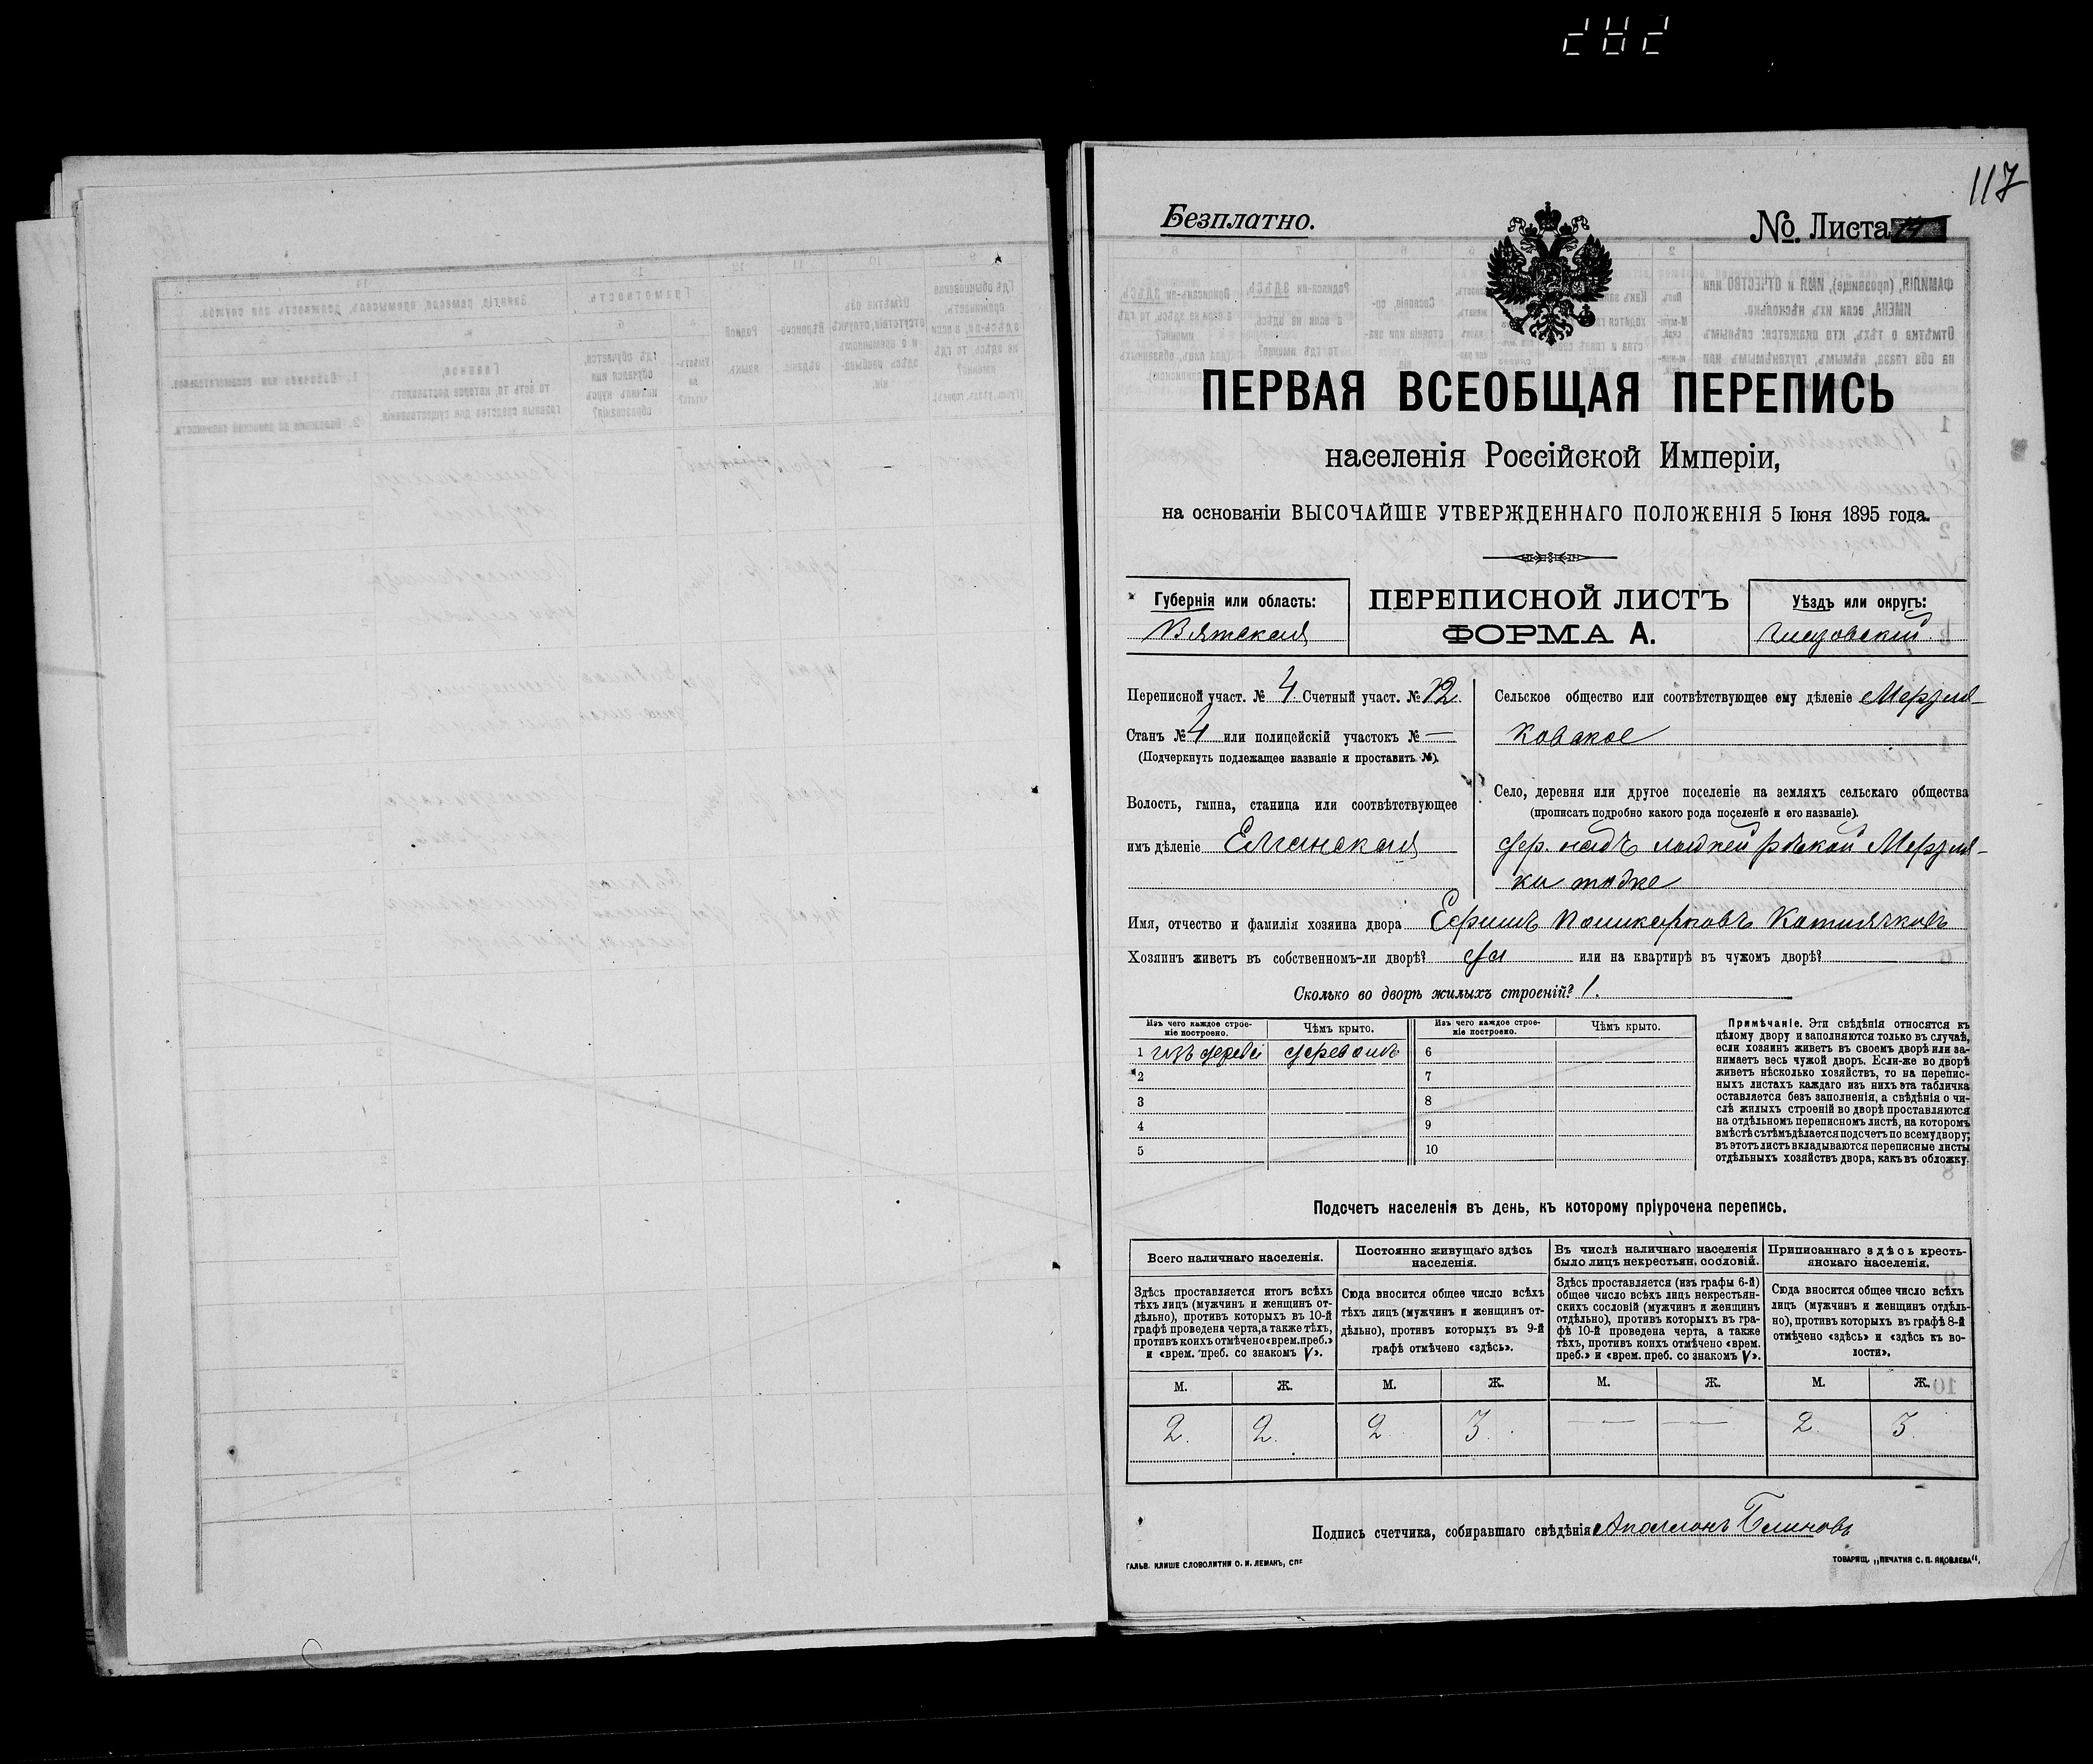 282
117
Безплатно.
№ Листа
ПЕРВАЯ ВСЕОБЩАЯ ПЕРЕПИСЬ
населенія Россійской Имперіи,
на основаніи ВЫСОЧАЙШЕ УТВЕРЖДЕННАГО ПОЛОЖЕНІЯ 5 Іюня 1895 года.
Губернія или область:
Вятская
ПЕРЕПИСНОЙ ЛИСТЪ
ФОРМА А.
Уѣздъ или округъ:
Глазовскій
Переписной участ. № 4 Счетный участ. № 12.
Станъ № 4 или полицейскій участокъ № —
(Подчеркнуть подлежащее названіе и проставить №).
Волость, гмина, станица или соотвѣтствующее
имъ дѣленіе Елганская
Сельское общество или соотвѣтствующее ему дѣленіе Мерзля-
ковское
Село, деревня или другое поселеніе на земляхъ сельскаго общества
(прописать подробно какого рода поселеніе и его названіе).
дер. надъ рѣчкой Мерзля-
ки тодке
Имя, отчество и фамилія хозяина двора Ефимъ Поликарповъ Котлячковъ
Хозяинъ живетъ въ собственномъ-ли дворѣ? да или на квартирѣ въ чужомъ дворѣ?
Сколько во дворѣ жилыхъ строеній? 1.
Изъ чего каждое строе-
ніе построено.
Чѣмъ крыто.
Изъ чего каждое строе-
ніе построено.
Чѣмъ крыто.
1 изъ дерева деревомъ 6
2 7
3 8
4 9
5 10
Примѣчаніе. Эти свѣдѣнія относятся къ
цѣлому двору и заполняются только въ случаѣ,
если хозяинъ живетъ въ своемъ дворѣ или за-
нимаетъ весь чужой дворъ. Если-же во дворѣ
живетъ нѣсколько хозяйствъ, то на перепис-
ныхъ листахъ каждаго изъ нихъ эта табличка
оставляется безъ заполненія, а свѣдѣнія о чи-
слѣ жилыхъ строеній во дворѣ проставляются
на отдѣльномъ переписномъ листѣ, на которомъ
вмѣстѣ съ тѣмъ дѣлается подсчетъ по всему двору;
въ этотъ листъ вкладываются переписные листы
отдѣльныхъ хозяйствъ двора, какъ въ обложку.
Подсчетъ населенія въ день, къ которому пріурочена перепись.
Всего наличнаго населенія.
Здѣсь проставляется итогъ всѣхъ
тѣхъ лицъ (мужчинъ и женщинъ от-
дѣльно), противъ которыхъ въ 10-й
графѣ проведена черта, а также тѣхъ,
противъ коихъ отмѣчено «врем. преб.»
и «врем. преб. со знакомъ V».
Постоянно живущаго здѣсь
населенія.
Сюда вносится общее число всѣхъ
тѣхъ лицъ (мужчинъ и женщинъ от-
дѣльно), противъ которыхъ въ 9-й
графѣ отмѣчено «здѣсь».
Въ числѣ наличнаго населенія
было лицъ некрестьян. сословій.
Здѣсь проставляется (изъ графы 6-й)
общее число всѣхъ лицъ некрестьян-
скихъ сословій (мужчинъ и женщинъ
отдѣльно), противъ которыхъ въ гра-
фѣ 10-й проведена черта, а также
тѣхъ, противъ коихъ отмѣчено «врем.
преб.» и «врем. преб. со знакомъ V».
Приписаннаго здѣсь кресть-
янскаго населенія.
Сюда вносится общее число всѣхъ
лицъ (мужчинъ и женщинъ отдѣль-
но), противъ которыхъ въ графѣ 8-й
отмѣчено «здѣсь» и «здѣсь къ во-
лости».
М. Ж. М. Ж. М. Ж. М. Ж.
2. 2. 2. 3. — — 2 3.
Подпись счетчика, собиравшаго свѣдѣнія Аполлонъ Блиновъ
ГАЛЬВ. КЛИШЕ СЛОВОЛИТНИ О. И. ЛЕМАНЪ, СПБ
ТОВАРИЩ. „ПЕЧАТНЯ С. П. ЯКОВЛЕВА".